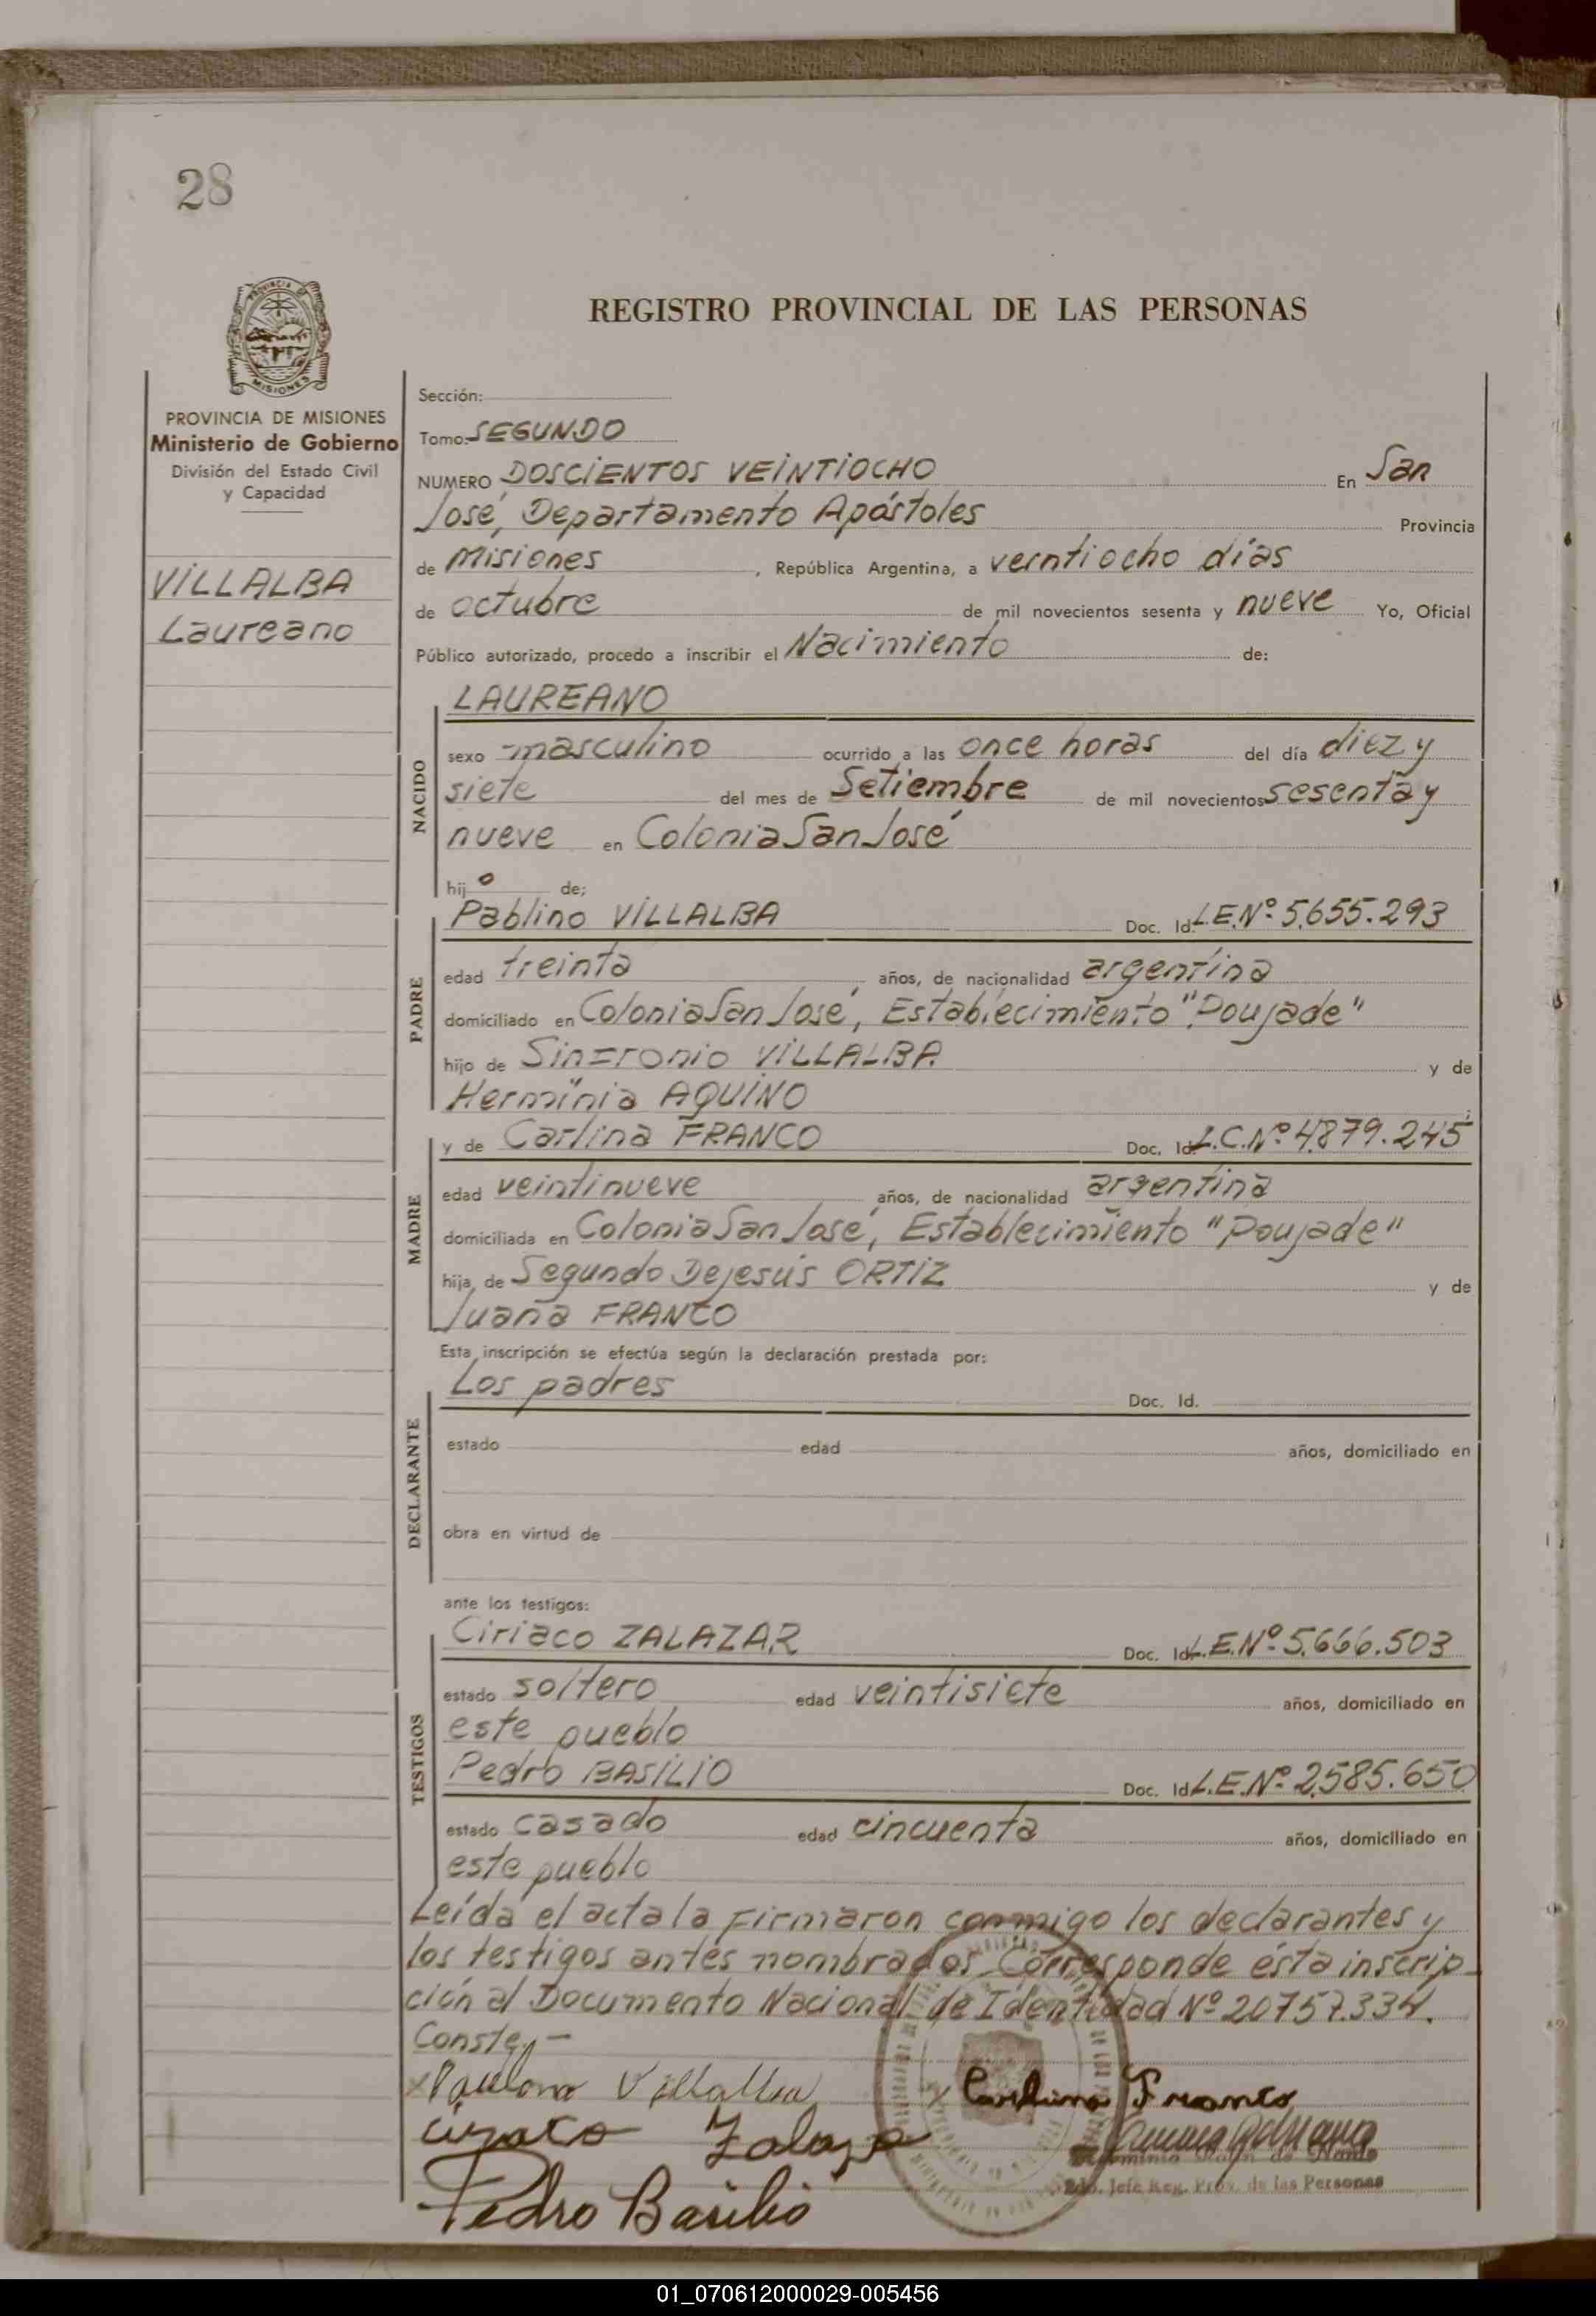 28
REGISTRO PROVINCIAL DE LAS PERSONAS
PROVINCIA DE MISIONES
Ministerio de Gobierno
División del Estado Civil
y Capacidad
VILLALBA
Laureano
Sección:
Tomo: SEGUNDO
NUMERO DOSCIENTOS VEINTIOCHO En San
José, Departamento Apóstoles Provincia
de Misiones, República Argentina, a veintiocho días
de octubre de mil novecientos sesenta y nueve Yo, Oficial
Público autorizado, procedo a inscribir el Nacimiento de:
NACIDO
LAUREANO
sexo masculino ocurrido a las once horas del día diez y
siete del mes de Setiembre de mil novecientos sesenta y
nueve en Colonia San José
hijo de;
PADRE
Pablino VILLALBA Doc. Id. L.E.Nº 5.655.293
edad treinta años, de nacionalidad argentina
domiciliado en Colonia San José, Establecimiento "Poujade"
hijo de VILLALBA y de
Herminia AQUINO
MADRE
y de Carlina FRANCO Doc. Id. L.C.Nº 4.879.245
edad veintinueve años, de nacionalidad argentina
domiciliada en Colonia San José, Establecimiento "Poujade"
hija de Segundo Dejesús ORTIZ y de
Juana FRANCO
Esta inscripción se efectúa según la declaración prestada por:
DECLARANTE
Los padres Doc. Id.
estado edad años, domiciliado en
obra en virtud de
ante los testigos:
TESTIGOS
Ciriaco ZALAZAR Doc. Id. L.E.Nº 5.666.503
estado soltero edad veintisiete años, domiciliado en
este pueblo
Pedro BASILIO Doc. Id. L.E.Nº 2.585.650
estado casado edad cincuenta años, domiciliado en
este pueblo
Leída el acta la firmaron conmigo los declarantes y
los testigos antes nombrados. Corresponde ésta inscrip-
ción al Documento Nacional de Identidad Nº 20757.334.
Conste.-
x Villalba x Carlina Franco
Pedro Basilio
Jefe Reg. Prov. de las Personas
01_070612000029-005456